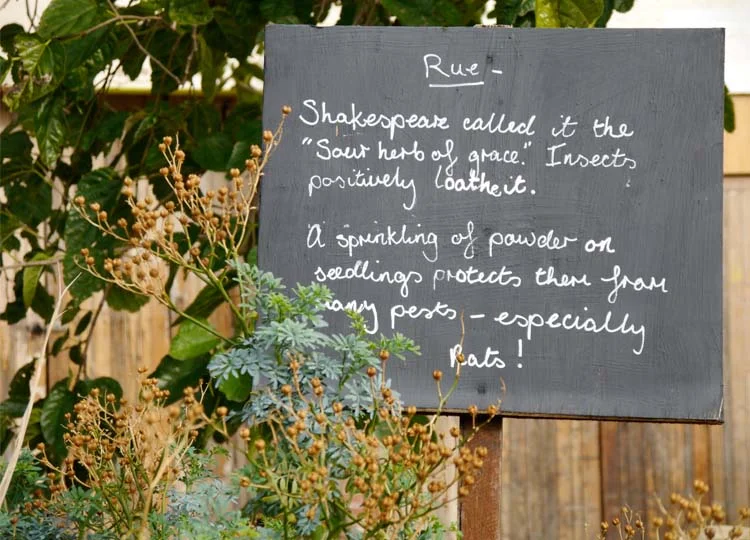 Rue -
Shakespeare called it the
"Sour herb of grace." Insects
positively loathe it.
A sprinkling of powder on
seedlings protects them from
many pests - especially
Rats!